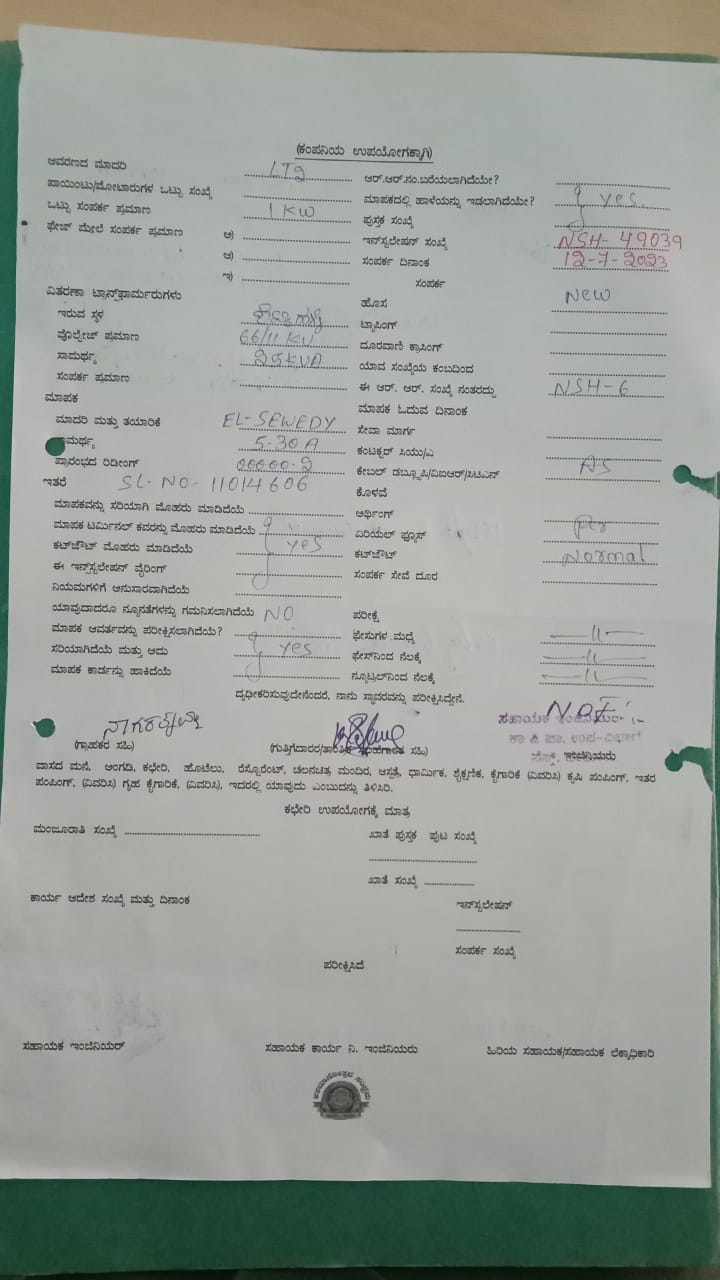 (ಕಂಪನಿಯ ಉಪಯೋಗಕ್ಕಾಗಿ)
ಆವರಣದ ಮಾದರಿ LT2 ಆರ್.ಆರ್.ನಂ.ಬರೆಯಲಾಗಿದೆಯೇ?
ಪಾಯಿಂಟು/ಮೋಟಾರುಗಳ ಒಟ್ಟು ಸಂಖ್ಯೆ ಮಾಪಕದಲ್ಲಿ ಹಾಳೆಯನ್ನು ಇಡಲಾಗಿದೆಯೇ? yes
ಒಟ್ಟು ಸಂಪರ್ಕ ಪ್ರಮಾಣ 1 KW ಪುಸ್ತಕ ಸಂಖ್ಯೆ
ಫೇಜ್ ಮೇಲೆ ಸಂಪರ್ಕ ಪ್ರಮಾಣ ಅ) ಇನ್‌ಸ್ಟಲೇಷನ್ ಸಂಖ್ಯೆ NSH-49039
ಆ) ಸಂಪರ್ಕ ದಿನಾಂಕ 12-7-2023
ಇ) ಸಂಪರ್ಕ
ವಿತರಣಾ ಟ್ರಾನ್ಸ್‌ಫಾರ್ಮರುಗಳು ಹೊಸ New
ಇರುವ ಸ್ಥಳ ಟ್ಯಾಪಿಂಗ್
ವೊಲ್ಟೇಜ್ ಪ್ರಮಾಣ 66/11 KV ದೂರವಾಣಿ ಕ್ರಾಸಿಂಗ್
ಸಾಮರ್ಥ್ಯ 25KVA ಯಾವ ಸಂಖ್ಯೆಯ ಕಂಬದಿಂದ
ಸಂಪರ್ಕ ಪ್ರಮಾಣ ಈ ಆರ್. ಆರ್. ಸಂಖ್ಯೆ ನಂತರದ್ದು NSH-6
ಮಾಪಕ ಮಾಪಕ ಓದುವ ದಿನಾಂಕ
ಮಾದರಿ ಮತ್ತು ತಯಾರಿಕೆ EL-SEWEDY ಸೇವಾ ಮಾರ್ಗ
ಸಾಮರ್ಥ್ಯ 5-30A ಕಂಟಕ್ಟರ್ ಸಿಯು/ಎ
ಪ್ರಾರಂಭದ ರಿಡೀಂಗ್ 00000.2 ಕೇಬಲ್ ಡಬ್ಲ್ಯೂಪಿ/ವಿಐಆರ್/ಸಿಟಿಎನ್ AS
ಇತರೆ SL.NO-11014606 ಕೊಳವೆ
ಮಾಪಕವನ್ನು ಸರಿಯಾಗಿ ಮೊಹರು ಮಾಡಿದೆಯೆ ಅರ್ಥಿಂಗ್
ಮಾಪಕ ಟರ್ಮಿನಲ್ ಕವರನ್ನು ಮೊಹರು ಮಾಡಿದೆಯೆ ಏರಿಯಲ್ ಫ್ಯೂಸ್ Per
ಕಟ್‌ಔಟ್ ಮೊಹರು ಮಾಡಿದೆಯೆ yes ಕಟ್‌ಔಟ್ Normal
ಈ ಇನ್‌ಸ್ಟಲೇಷನ್ ವೈರಿಂಗ್ ಸಂಪರ್ಕ ಸೇವೆ ದೂರ
ನಿಯಮಗಳಿಗೆ ಅನುಸಾರವಾಗಿದೆಯೆ
ಯಾವುದಾದರೂ ನ್ಯೂನತೆಗಳನ್ನು ಗಮನಿಸಲಾಗಿದೆಯೆ NO ಪರೀಕ್ಷೆ
ಮಾಪಕ ಆವರ್ತವನ್ನು ಪರೀಕ್ಷಿಸಲಾಗಿದೆಯೆ? ಫೇಸುಗಳ ಮಧ್ಯೆ -11-
ಸರಿಯಾಗಿದೆಯೆ ಮತ್ತು ಅದು yes ಫೇಸ್‌ನಿಂದ ನೆಲಕ್ಕೆ -11-
ಮಾಪಕ ಕಾರ್ಡನ್ನು ಹಾಕಿದೆಯೆ ನ್ಯೂಟ್ರಲ್‌ನಿಂದ ನೆಲಕ್ಕೆ -11-
ದೃಢೀಕರಿಸುವುದೇನೆಂದರೆ, ನಾನು ಸ್ಥಾವರವನ್ನು ಪರೀಕ್ಷಿಸಿದ್ದೇನೆ.
ಸಹಾಯಕ ಇಂಜಿನಿಯರ್
ಕಾ & ಪಾ, ಉಪ-ವಿಭಾಗ
(ಗ್ರಾಹಕರ ಸಹಿ) ಸಹಿ) ಇಂಜಿನಿಯರು
ವಾಸದ ಮನೆ, ಅಂಗಡಿ, ಕಛೇರಿ, ಹೊಟೆಲು, ರೆಸ್ಟೊರೆಂಟ್, ಚಲನಚಿತ್ರ ಮಂದಿರ, ಆಸ್ಪತ್ರೆ, ಧಾರ್ಮಿಕ, ಶೈಕ್ಷಣಿಕ, ಕೈಗಾರಿಕೆ (ವಿವರಿಸಿ) ಕೃಷಿ ಪಂಪಿಂಗ್, ಇತರ
ಪಂಪಿಂಗ್, (ವಿವರಿಸಿ) ಗೃಹ ಕೈಗಾರಿಕೆ, (ವಿವರಿಸಿ), ಇದರಲ್ಲಿ ಯಾವುದು ಎಂಬುದನ್ನು ತಿಳಿಸಿರಿ.
ಕಛೇರಿ ಉಪಯೋಗಕ್ಕೆ ಮಾತ್ರ
ಮಂಜೂರಾತಿ ಸಂಖ್ಯೆ ಖಾತೆ ಪುಸ್ತಕ ಪುಟ ಸಂಖ್ಯೆ
ಖಾತೆ ಸಂಖ್ಯೆ
ಕಾರ್ಯ ಆದೇಶ ಸಂಖ್ಯೆ ಮತ್ತು ದಿನಾಂಕ ಇನ್‌ಸ್ಟಲೇಷನ್
ಸಂಪರ್ಕ ಸಂಖ್ಯೆ
ಪರೀಕ್ಷಿಸಿದೆ
ಸಹಾಯಕ ಇಂಜಿನಿಯರ್ ಸಹಾಯಕ ಕಾರ್ಯ ನಿ. ಇಂಜಿನಿಯರು ಹಿರಿಯ ಸಹಾಯಕ/ಸಹಾಯಕ ಲೆಕ್ಕಾಧಿಕಾರಿ